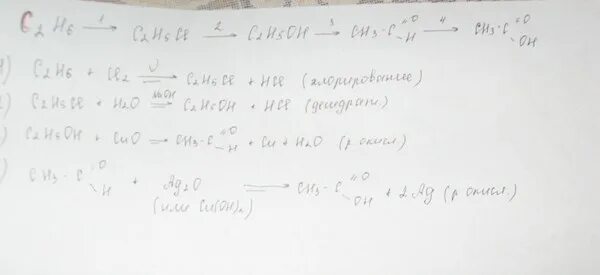 C2H6 —1→ C2H5Cl —2→ C2H5OH —3→ CH3-C(=O)H —4→ CH3-C(=O)OH
1) C2H6 + Cl2 → C2H5Cl + HCl (хлорирование)
) C2H5Cl + H2O =NaOH⇒ C2H5OH + HCl
) C2H5OH + CuO → CH3-C(=O)H + Cu + H2O (р окисл.)
) CH3-C(=O)H + Ag2O → CH3-C(=O)OH + 2Ag (р окисл.)
(или Cu(OH)2)